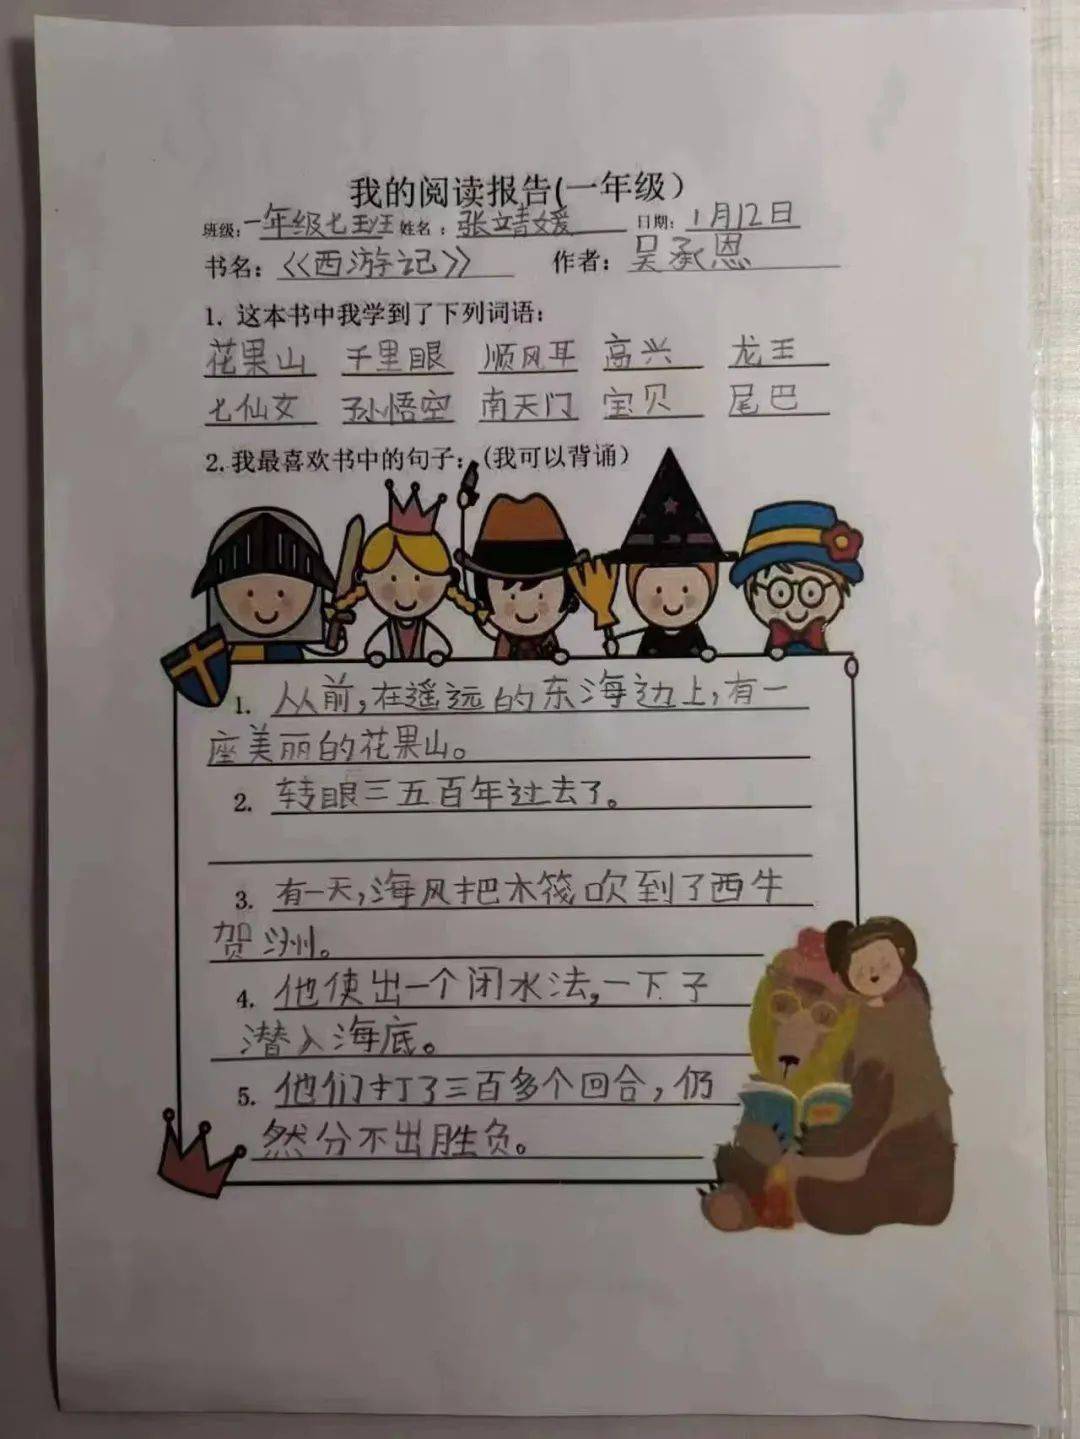 我的阅读报告(一年级）
班级：一年级七班 姓名：张靖媛 日期：1月12日
书名：《西游记》 作者：吴承恩
1. 这本书中我学到了下列词语：
花果山 千里眼 顺风耳 高兴 龙王
七仙女 孙悟空 南天门 宝贝 尾巴
2.我最喜欢书中的句子：（我可以背诵）
1. 从前,在遥远的东海边上,有一
座美丽的花果山。
2. 转眼三五百年过去了。
3. 有一天,海风把木筏吹到了西牛
贺洲。
4. 他使出一个闭水法,一下子
潜入海底。
5. 他们打了三百多个回合,仍
然分不出胜负。